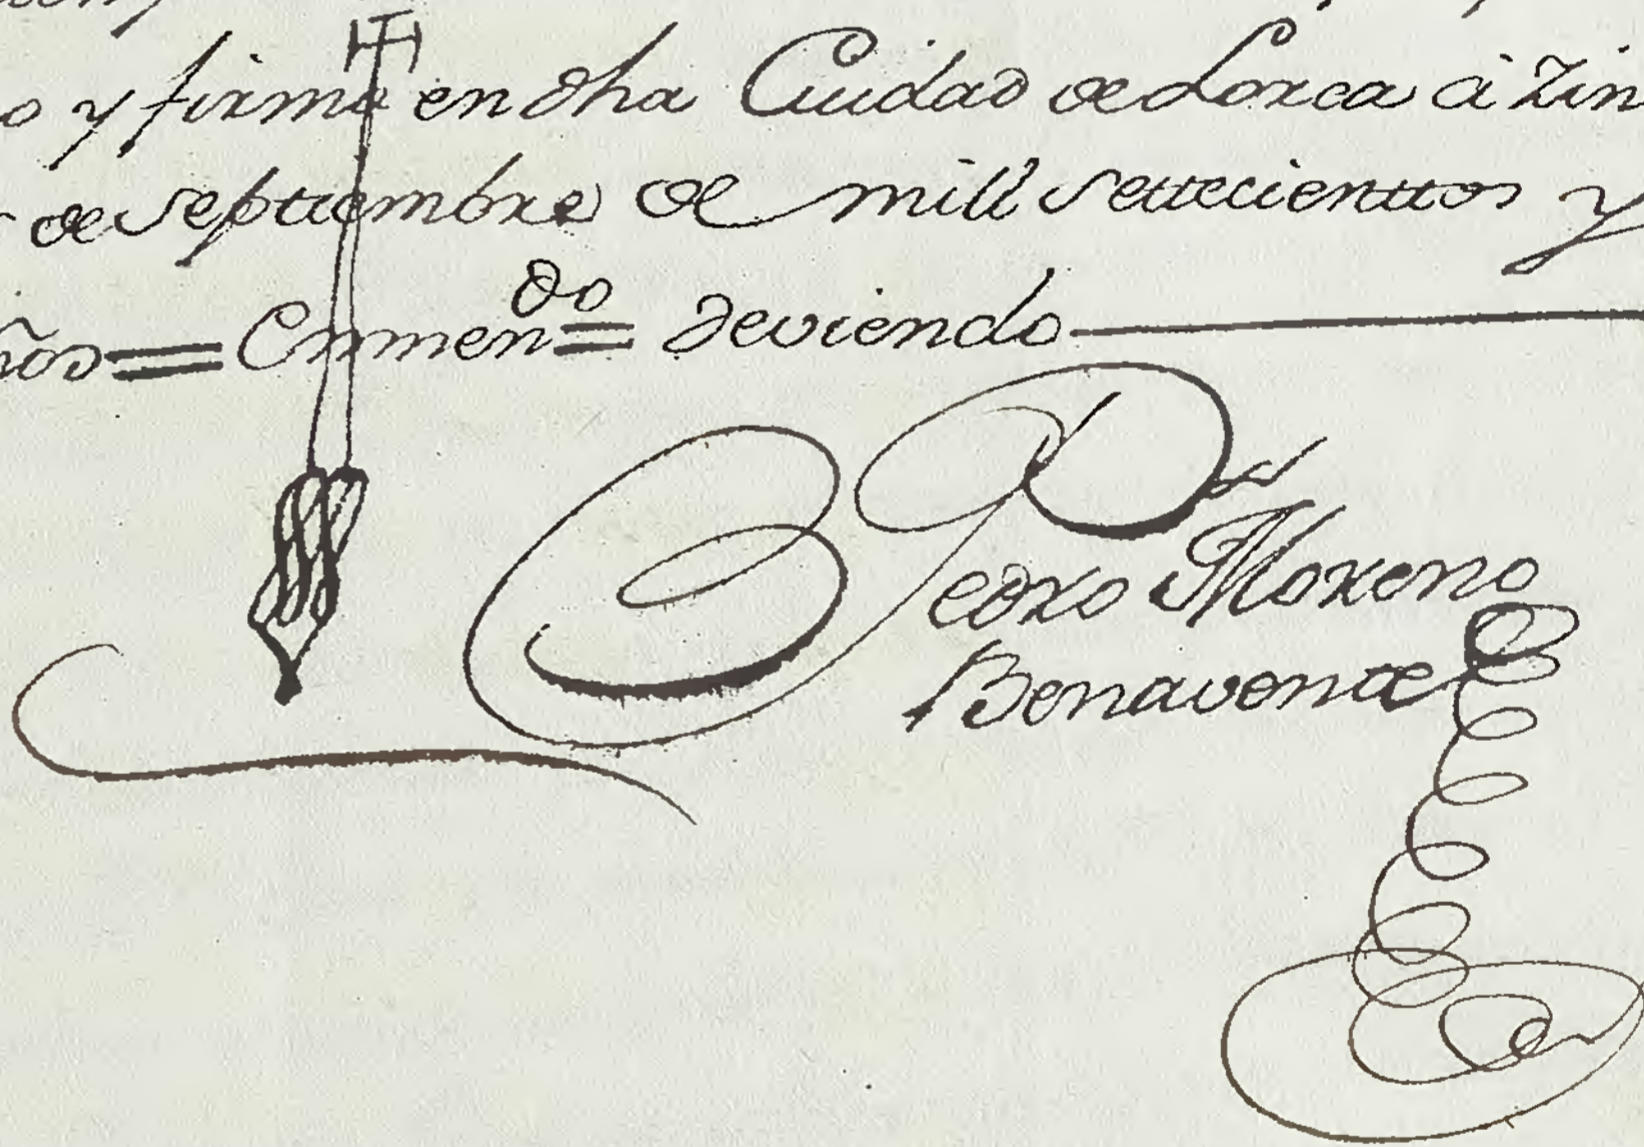 o y firmo en dha Ciudad de Lorca à Zin
de septiembre de mill settecienttos y
ños = Enmen^do = deviendo
Pedro Moreno
Benavente